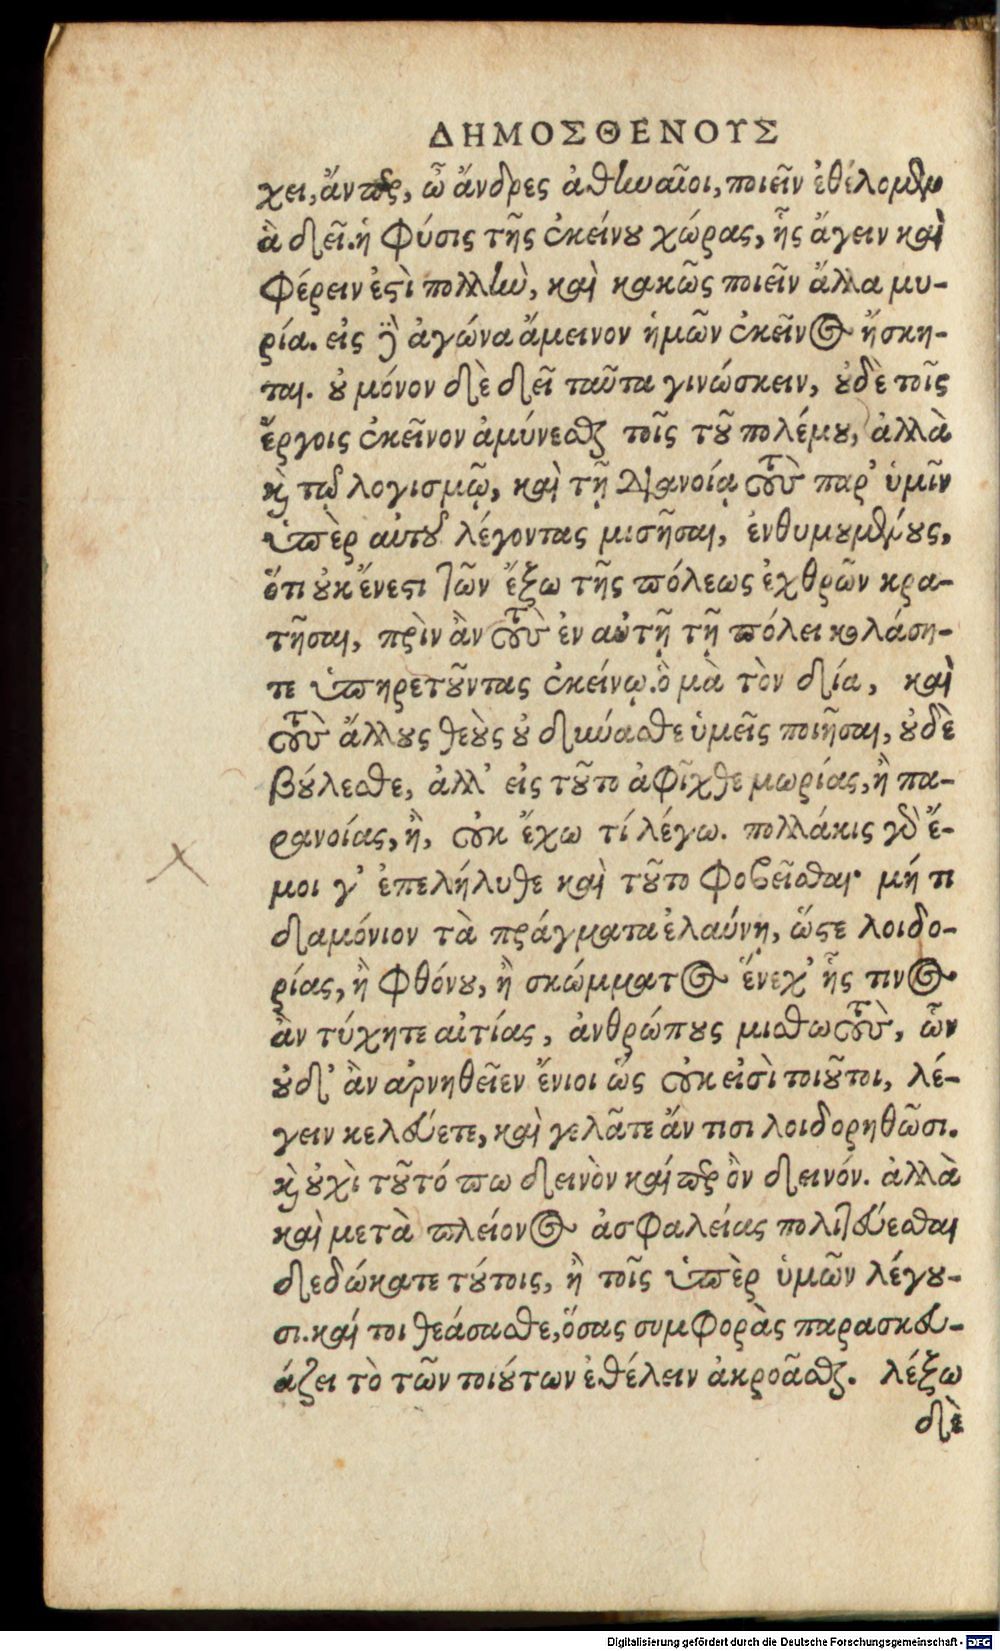 ΔΗΜΟΣΘΕΝΟΥΣ
χει, ἄν περ, ὦ ἄνδρες ἀθηναῖοι, ποιεῖν ἐθέλομεν
ἃ δεῖ. ἡ φύσις τῆς ἐκείνου χώρας, ἧς ἄγειν καὶ
φέρειν ἐστὶ πολλὴν, καὶ κακῶς ποιεῖν ἄλλα μυ-
ρία. εἰς δὲ ἀγώνα ἄμεινον ἡμῶν ἐκεῖνος ἤσκη-
ται. οὐ μόνον δὲ δεῖ ταῦτα γινώσκειν, οὐδὲ τοῖς
ἔργοις ἐκεῖνον ἀμύνεσθαι τοῖς τοῦ πολέμου, ἀλλὰ
καὶ τῷ λογισμῷ, καὶ τῇ διανοίᾳ τοὺς παρ' ὑμῖν
ὑπὲρ αὐτοῦ λέγοντας μισῆσαι, ἐνθυμουμένους,
ὅτι οὐκ ἔνεστι τῶν ἔξω τῆς πόλεως ἐχθρῶν κρα-
τῆσαι, πρὶν ἂν τοὺς ἐν αὐτῇ τῇ πόλει κολάση-
τε ὑπηρετοῦντας ἐκείνῳ. ὃ μὰ τὸν δία, καὶ
τοὺς ἄλλους θεοὺς οὐ δυνάσθε ὑμεῖς ποιῆσαι, οὐδὲ
βούλεσθε, ἀλλ' εἰς τοῦτο ἀφῖχθε μωρίας, ἢ πα-
ρανοίας, ἢ, οὐκ ἔχω τί λέγω. πολλάκις γὰρ ἔ-
μοι γ' ἐπελήλυθε καὶ τοῦτο φοβεῖσθαι μή τι
δαιμόνιον τὰ πράγματα ἐλαύνῃ, ὥστε λοιδο-
ρίας, ἢ φθόνου, ἢ σκώμματος ἕνεχ' ἧς τινος
ἂν τύχητε αἰτίας, ἀνθρώπους μισθωτοὺς, ὧν
οὐδ' ἂν ἀρνηθεῖεν ἔνιοι ὡς οὐκ εἰσὶ τοιοῦτοι, λέ-
γειν κελεύετε, καὶ γελᾶτε ἄν τισι λοιδορηθῶσι.
καὶ οὐχὶ τοῦτό πω δεινὸν καίπερ ὂν δεινόν. ἀλλὰ
καὶ μετὰ πλείονος ἀσφαλείας πολιτεύεσθαι
δεδώκατε τούτοις, ἢ τοῖς ὑπὲρ ὑμῶν λέγου-
σι. καί τοι θεάσασθε, ὅσας συμφορὰς παρασκευ-
άζει τὸ τῶν τοιούτων ἐθέλειν ἀκροᾶσθαι. λέξω
δὲ
Digitalisierung gefördert durch die Deutsche Forschungsgemeinschaft - DFG